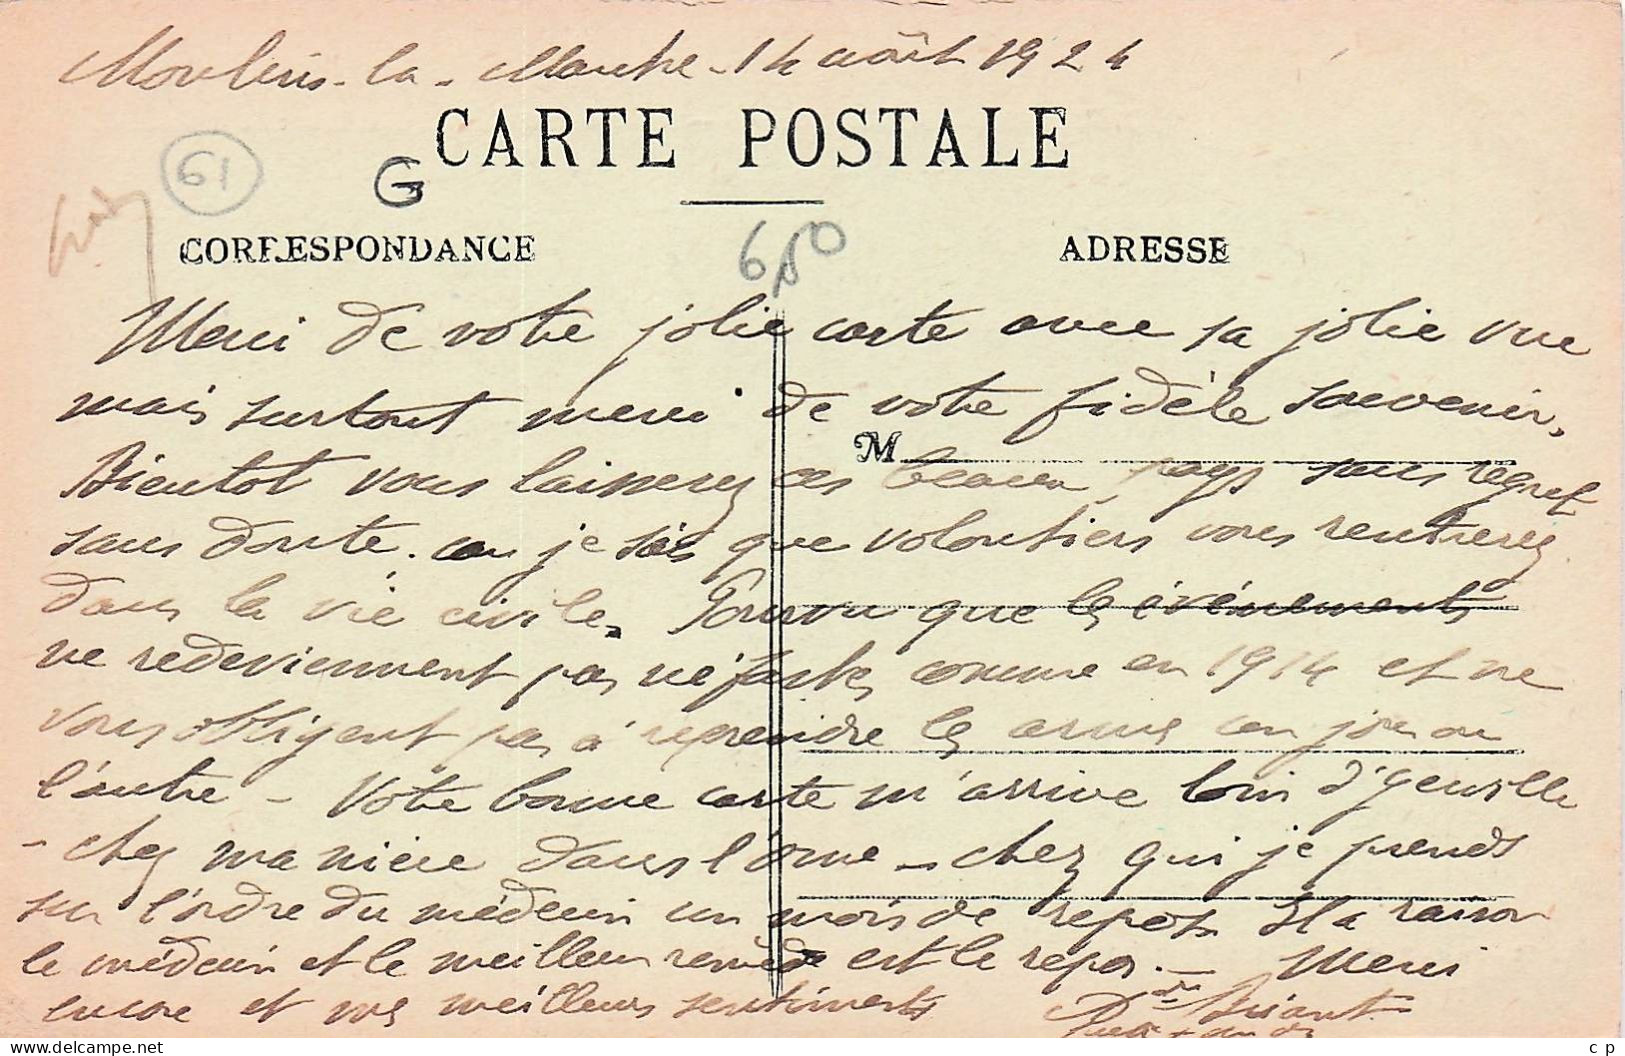 Moulins-la-Marche - 14 août 1924
CARTE POSTALE
61
G
650
CORRESPONDANCE
ADRESSE
Merci de votre jolie carte avec sa jolie vue
mais surtout merci de votre fidèle souvenir.
M
Bientot vous laisserez ces beaux pays sans regret
sans doute. car je sais que volontiers vous rentrerez
dans la vie civile. Pourvu que les évènements
ne redeviennent pas néfastes comme en 1914 et ne
vous obligent pas à reprendre les armes un jour ou
l'autre - Votre bonne carte m'arrive loin d'
- chez ma nièce dans l'Orne - chez qui je prends
sur l'ordre du médecin un mois de repos. Il a raison
le médecin et le meilleur remède est le repos. - Merci
encore et mes meilleurs sentiments
c p